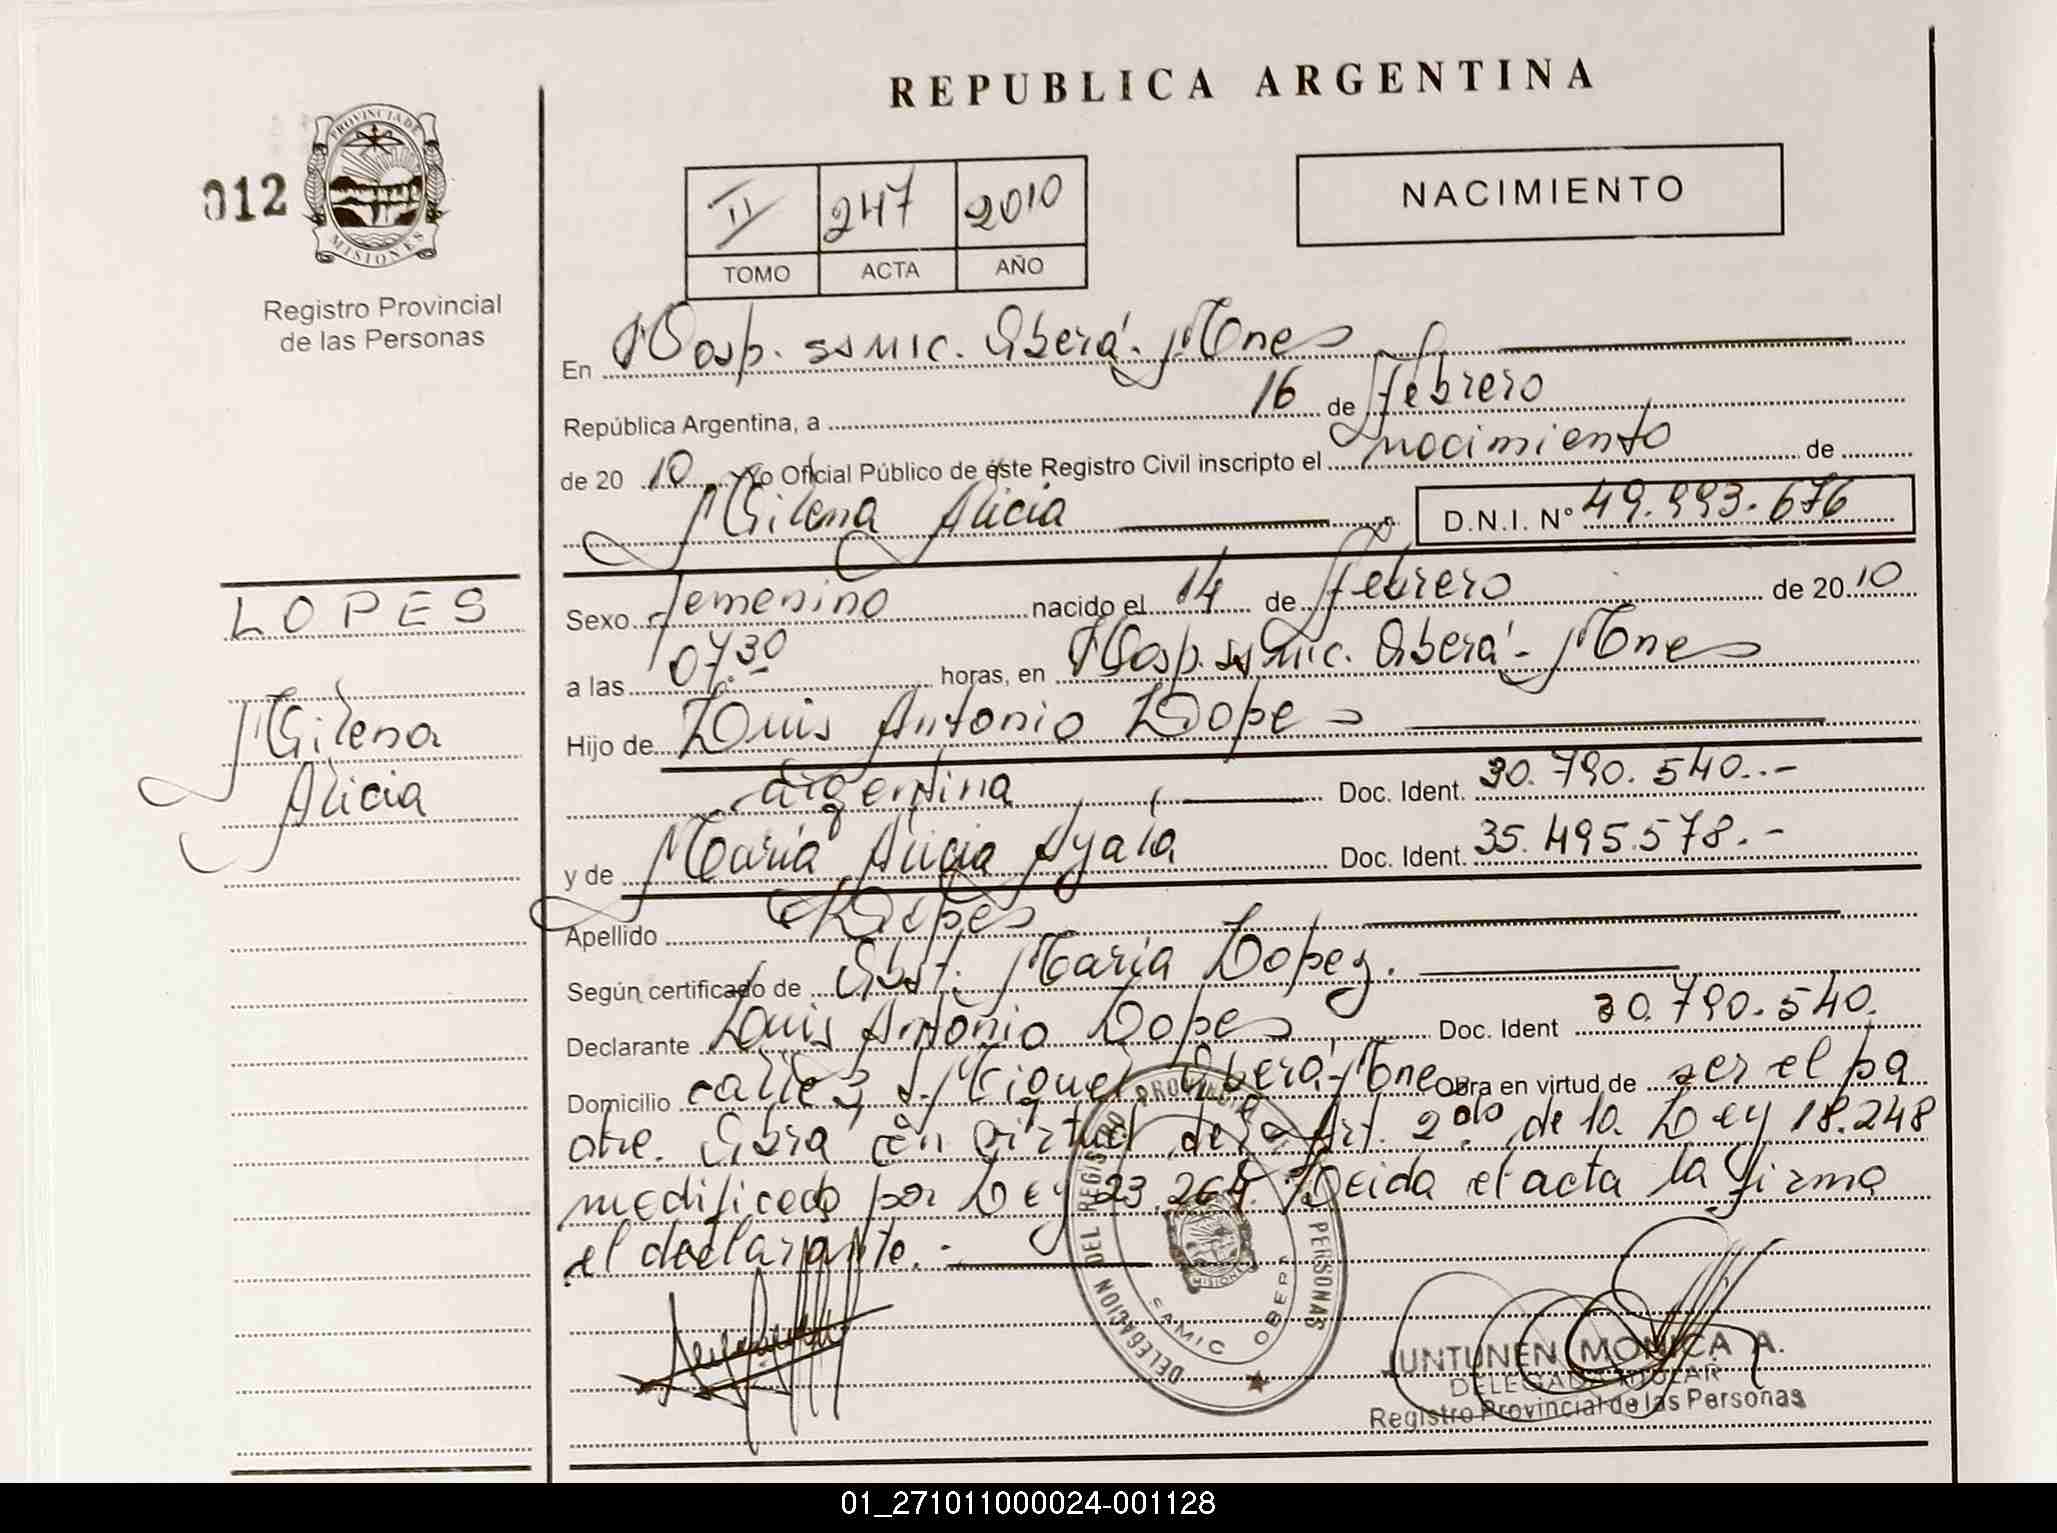 REPUBLICA ARGENTINA
012
PROVINCIA DE
MISIONES
Registro Provincial
de las Personas
II 247 2010
TOMO ACTA AÑO
NACIMIENTO
En Hosp. ssmic. Oberá - Mnes
República Argentina, a 16 de febrero
de 20 10 Yo Oficial Público de éste Registro Civil inscripto el nacimiento de
Milena Alicia D.N.I. N° 49.993.676
LOPES
Milena
Alicia
Sexo femenino nacido el 14 de febrero de 20 10
a las 07.30 horas, en Hosp. ssmic. Oberá - Mnes
Hijo de Luis Antonio Lopes
argentina Doc. Ident. 30.790.540.-
y de María Alicia Ayala Doc. Ident. 35.495.578.-
Apellido Lopes
Según certificado de Obst. María Lopez.
Declarante Luis Antonio Lopes Doc. Ident 30.790.540.
Domicilio calle 3 S. Miguel Oberá - Mnes Obra en virtud de ser el pa
dre. Obra en virtud del Art. 2do de la Ley 18.248
modificado por Ley 23.264. Leida el acta la firma
el declarante.-
DELEGACION DEL REGISTRO PROVINCIAL PERSONAS
SAMIC OBERA
MISIONES
JUNTUNEN MONICA A.
DELEGADA TITULAR
Registro Provincial de las Personas
01_271011000024-001128